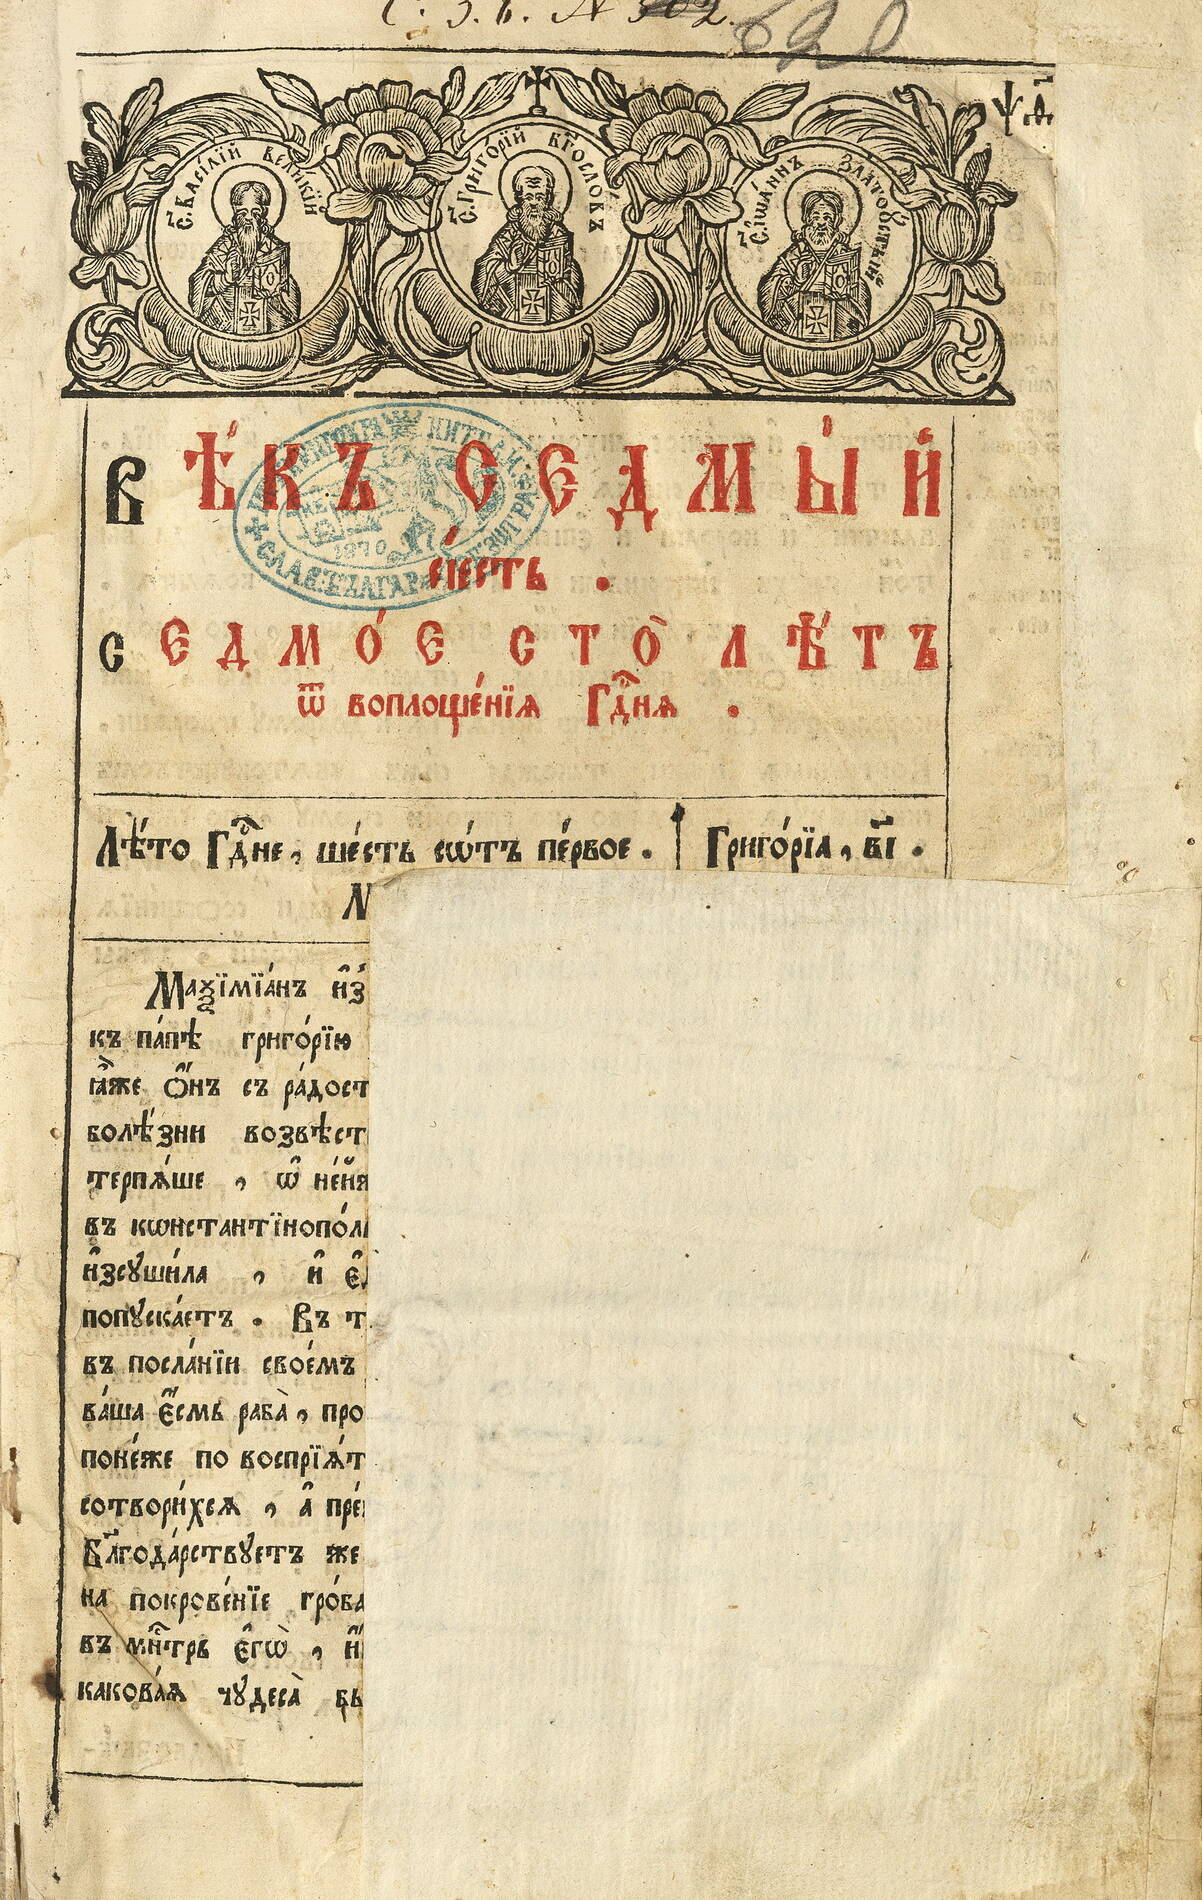 С. З. Б. № 302.
620
С. ВАСІ́ЛІЙ ВЕЛИ́КІЙ
С. ГРИГО́РІЙ БГОСЛО́ВЪ
С. ІѠА́ННЪ ЗЛАТОꙋ́СТЫЙ
Вѣ́КЪ СЕДМЫ́Й
є҆́сть .
СЕДМО́Е СТО̀ ЛѢ́ТЪ
ѿ воплоще́нїѧ Гдⷭ҇нѧ .
Лѣ́то Гдⷭ҇не , ше́сть сѡ́тъ пе́рвое . Григо́рїа , в҃і .
Маѯїмїа́нъ и҆з
къ па́пѣ григо́рїю
ꙗ҆́же Ѻ҆́нъ съ ра́дост
болѣ́зни возвѣст
терпѧ́ше , ѡ҆ не́йѧ
въ кѡнстантїнопо́л
и҆зсꙋши́ла , и҆ є҆
попꙋска́етъ . Въ т
въ посла́нїи свое́мъ
ва́ша є҆́смь раба̀ , про
поне́же по воспрїѧ́т
сотвори́хсѧ , а҆ пре
Бл҃года́рствꙋетъ же
на покрове́нїе гро́ба
въ мнⷭ҇трь є҆гѡ̀ , и҆
какова́ѧ чꙋдеса̀ бы
1870